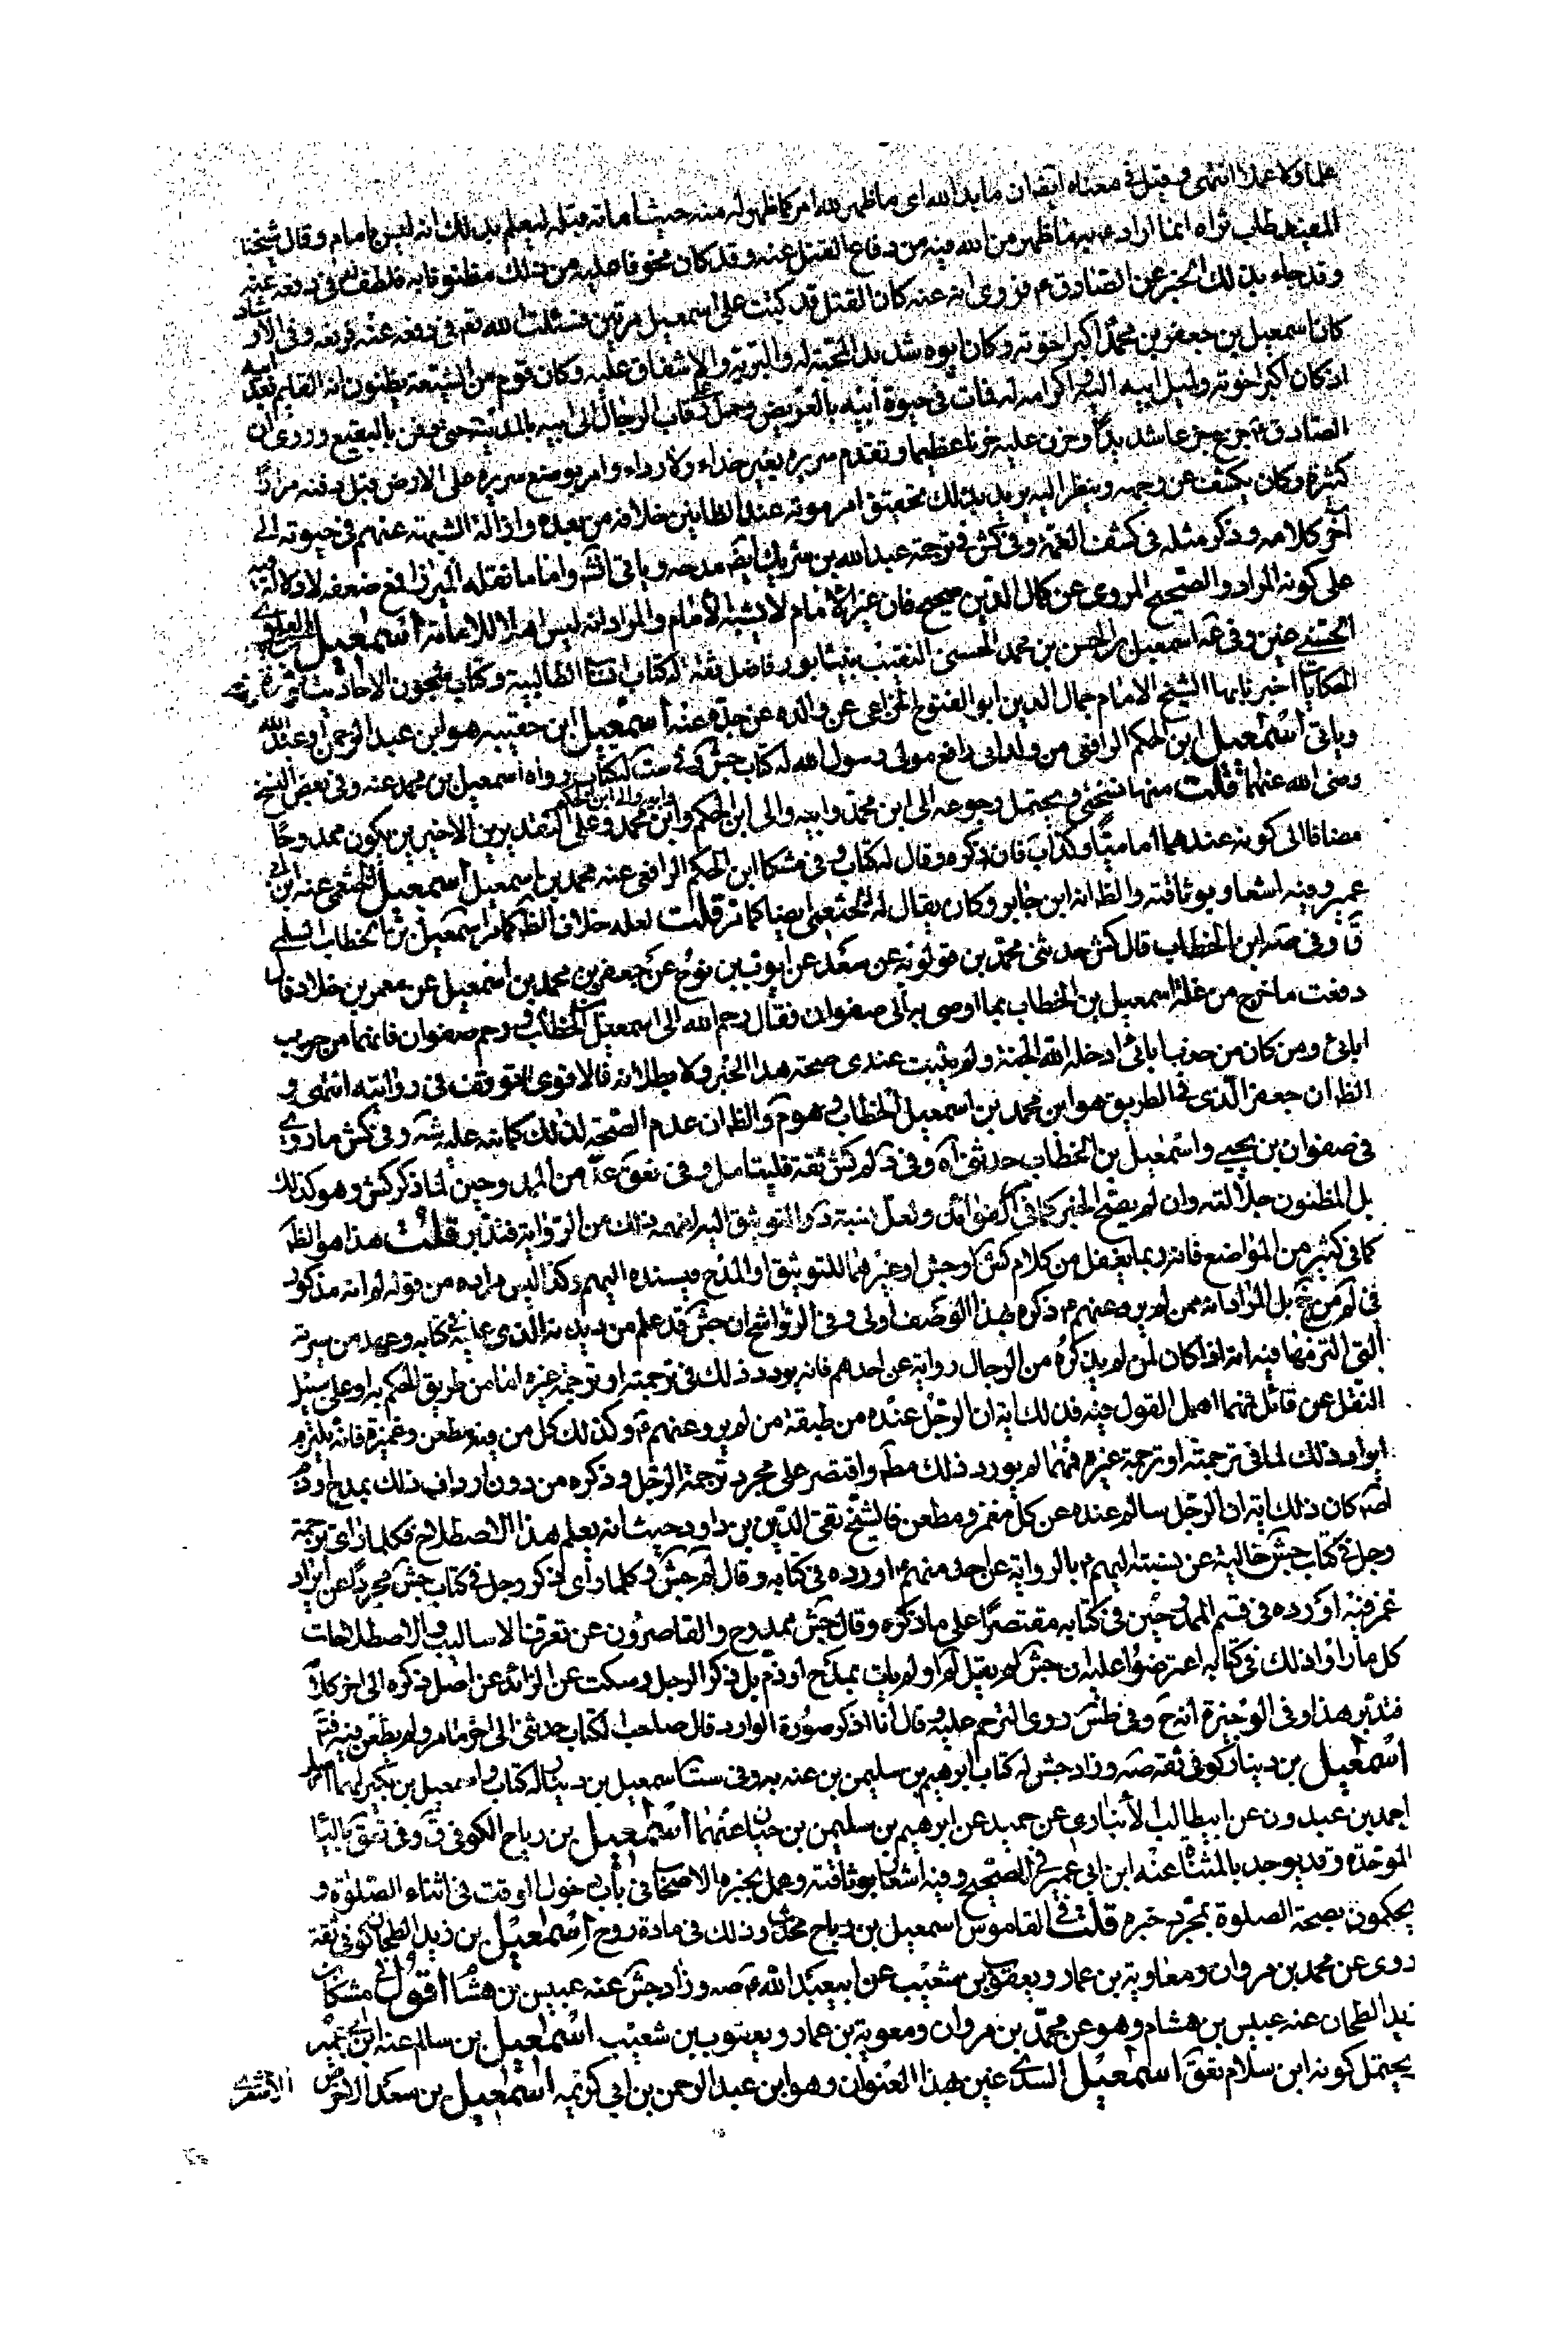 علما ولا عملا انتهى وقيل في معناه ايضا ان ما بدا لله اى ما ظهر لله امر كما ظهر له منه حيث اماته قبله ليعلم بذلك انه ليس بامام وقال شيخنا
المفيد طاب ثراه انما اراد ع بهذا ما ظهر من الله فيه من دفاع القتل عنه وقد كان مخوفا عليه من ذلك مظنونا به فلطف له في دفعه عنه
وقد جاء بذلك الخبر عن الصادق ع فروى انه عنه كان القتل قد كتب على اسمعيل مرتين فسئلت الله تعم في دفعه عنه فدفعه وفى الارشاد
كان اسمعيل بن جعفر بن محمد اكبر اخوته وكان ابوه شديد المحبة له والبر به والاشفاق عليه وكان قوم من الشيعة يظنون انه القايم بعد ابيه
اذ كان اكبر اخوته ولميل ابيه اليه واكرامه له فمات في حيوة ابيه بالعريض وحمل على رقاب الرجال الى ابيه بالمدينة حتى دفن بالبقيع وروى ان
الصادق ع جزع جزعا شديدا وحزن عليه حزنا عظيما وتقدم سريره بغير حذاء ولا رداء وامر بوضع سريره على الارض قبل دفنه مرارا
كثيرة وكان يكشف عن وجهه وينظر اليه يريد بذلك تحقيق امر موته عند الظانين خلافه من بعده وازالة الشبهة عنهم في حيوته الى
آخر كلامه وذكر مثله في كشف الغمة وفى كش في ترجمة عبدالله بن شريك ايضا مدحه وياتي انشم واما ما نقله الميرزا فمع ضعفه لا دلالة فيه
على كونه المراد والصحيح المروى عن كمال الدين صحيح فان غير الامام لا يشبه الامام والمراد انه ليس اهلا للامامة اسمعيل العلوى
الحسنى عين وفى عه اسمعيل بن الحسن بن محمد الحسنى النقيب بنيشابور فاضل ثقة له كتاب انساب الطالبية وكتاب شجون الاحاديث
الحكايات اخبرنا بهما الشيخ الامام جمال الدين ابو الفتوح الخزاعى عن والده عن جده عنه اسمعيل ابن حقيبه هو ابن عبد الرحمن او عبدالله
وياتى اسمعيل ابن الحكم الرافعى من ولد ابى رافع مولى رسول الله له كتاب جش وفى ست له كتاب رواه اسمعيل بن محمد عنه وفى بعض النسخ
رضى الله عنهما قلت منها نسختى ويحتمل رجوعه الى ابن محمد وابيه والى ابن الحكم وابن محمد وابيه والى ابن الحكم وعلى التقديرين الاخيرين يكون ممدوحا
مضافا الى كونه عندهما اماميا وكذاب فان ذكره وقال له كتاب وفى مشكا ابن الحكم الرافعى عنه محمد بن اسمعيل اسمعيل الخثعمى عنه ابن ابى
عمير وفيه اشعار بوثاقته والظ انه ابن جابر وكان يقال له الخثعمى ايضا كما مر قلت لعله خلاف الظ كما مر اسمعيل بن الخطاب السلمى
ق وفى صه ابن الخطاب قال كش حدثنى محمد بن قولويه عن سعد عن ايوب بن نوح عن جعفر بن محمد بن اسمعيل عن معمر بن خلاد قال
دفعت ما خرج من غلة اسمعيل بن الخطاب بما اوصى به الى صفوان فقال رحم الله اسمعيل بن الخطاب ورحم صفوان فانهما من حزب
ابائى ومن كان من حزب ابائى ادخله الله الجنة ولم يثبت عندى صحة هذا الخبر ولا بطلانه فالاقوى التوقف في روايته انتهى و
الظ ان جعفر الذى في الطريق هو ابن محمد بن اسمعيل الخطاب وهو م والظ ان عدم الصحة لذلك كما نبه عليه شه وفى كش ما روى
في صفوان بن يحيى واسمعيل بن الخطاب حدثنى آه وفى د لم كش ثقة فليتامل وفى تعق عده من الممدوحين لما ذكر كش وهو كذلك
بل المظنون جلالته وان لم يصح الخبر كما في الفوائد ولعل نسبة د التوثيق اليه لفهمه ذلك من الرواية فتدبر قلت هذا هو الظ
كما في كثير من المواضع فانه ربما يغفل من كلام كش او جش او غيرهما للتوثيق او المدح فيسنده اليهم وكذا ليس مراده من قوله لم انه مذكور
في لم من جخ بل المراد انه ممن لم يرو عنهم ع ذكره بهذا الوصف اولى وفى الرواشح ان جش قد علم من ديدنه الذى عليه في كتابه وعهد من سيرته
التى التزمها فيه انه اذا كان لمن لم يذكره من الرجال رواية عن احدهم فانه يورد ذلك في ترجمته او ترجمة غيره اما من طريق الحكم به او على سبيل
النقل عن قائل فمهما اهمل القول فيه فذلك اية ان الرجل عنده من طبقة من لم يرو عنهم ع وكذلك كل من فيه مطعن وغميزة فانه يلتزم
ايراد ذلك اما في ترجمته او ترجمة غيره فمهما لم يورد ذلك مطم واقتصر على مجرد ترجمة الرجل وذكره من دون ارداف ذلك بمدح او ذم
اصم كان ذلك اية ان الرجل سالم عنده عن كل مغمز ومطعن فالشيخ تقى الدين بن داود حيث انه يعلم هذا الاصطلاح فكلما راى ترجمة
رجل في كتاب جش خالية عن نسبته اليهم ع بالرواية عن احد منهم ع اورده في كتابه وقال لم جش وكلما راى ذكر رجل في كتاب جش مجردا عن ايراد
غمز فيه اورده في قسم الممدوحين في كتابه مقتصرا على ما ذكره وقال جش ممدوح والقاصرون عن تعرف الاساليب والاصطلاحات
كل ما راوا ذلك في كتابه اعترضوا عليه ان جش لم يقل لم او لم يات بمدح او ذم بل ذكر الرجل وسكت عن الزائد عن اصل ذكره الى اخر كلامه
فتدبر هذا وفى الوجيزة انه ح وفى طس روى الترحم عليه وقال انا اذكر صورة الوارد قال صاحب الكتاب حدثنى الى اخر ما مر ولم يطعن فيه فتم
اسمعيل بن دينار كوفى ثقة صه وزاد جش له كتاب ابرهيم بن سليمن عنه به وفى ست اسمعيل بن دينار له كتاب واسمعيل بن بكير لهما اصل
احمد بن عبدون عن ابيطالب الأنبارى عن حميد عن ابرهيم بن سليمن بن حيان عنهما اسمعيل بن رباح الكوفى ق وفى تعق بالباء
الموحدة وقد يوجد بالمثناة عنه ابن ابى عمير في الصحيح وفيه اشعار بوثاقته وعمل بخبره الاصحاب في باب دخول الوقت في اثناء الصلوة و
يحكمون بصحة الصلوة بمجرد خبره قلت وفى القاموس اسمعيل بن رياح محدث وذلك في مادة روح اسمعيل بن زيد الطحان كوفى ثقة
روى عن محمد بن مروان ومعاوية بن عمار ويعقوب بن شعيب عن ابيعبد الله ع صه وزاد جش عنه عبيس بن هشام اقول في مشكا ابن
زيد الطحان عنه عبيس بن هشام وهو عن محمد بن مروان ومعوية بن عمار ويعقوب بن شعيب اسمعيل بن سالم عنه ابن ابى عمير
يحتمل كونه ابن سلام تعق اسمعيل السدى عين بهذا العنوان وهو ابن عبد الرحمن بن ابى كريمه اسمعيل بن سعد الاحوص الاشعرى